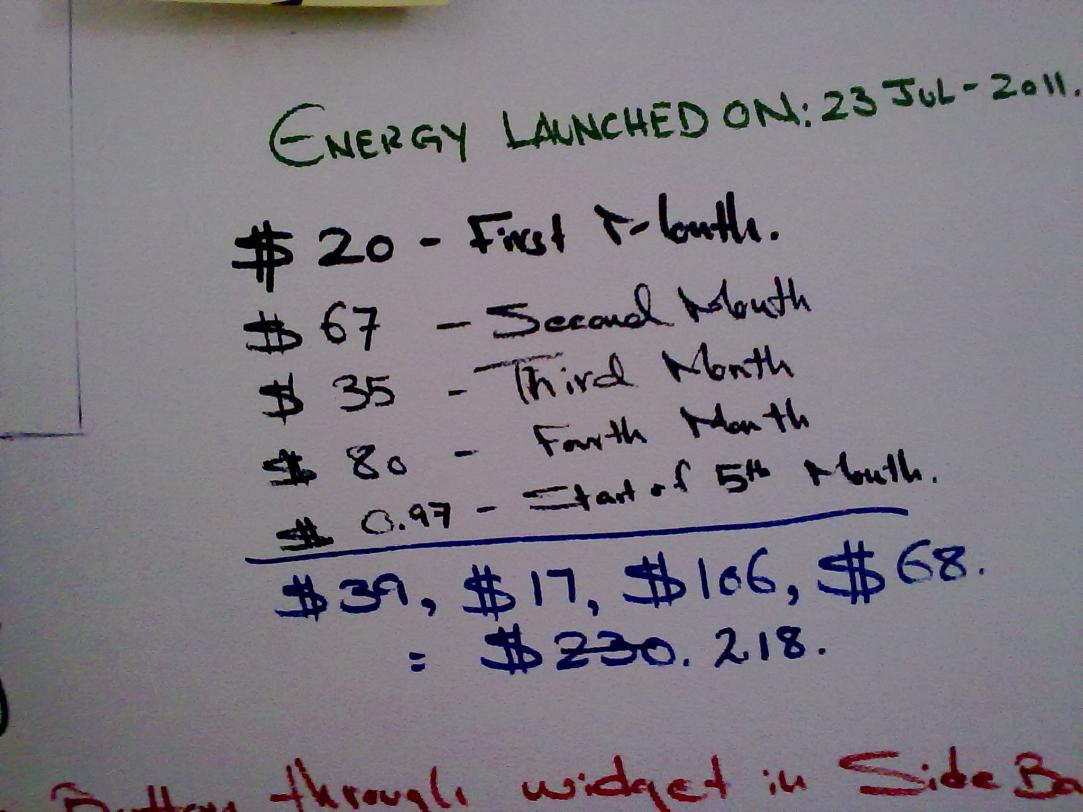 ENERGY LAUNCHED ON: 23 JUL-2011.
$ 20 - First Month.
$ 67 - Second Month
$ 35 - Third Month
$ 80 - Fourth Month
$ 0.97 - Start of 5th Month.
$39, $17, $106, $68.
= $230. 218.
Button through widget in Side Ba